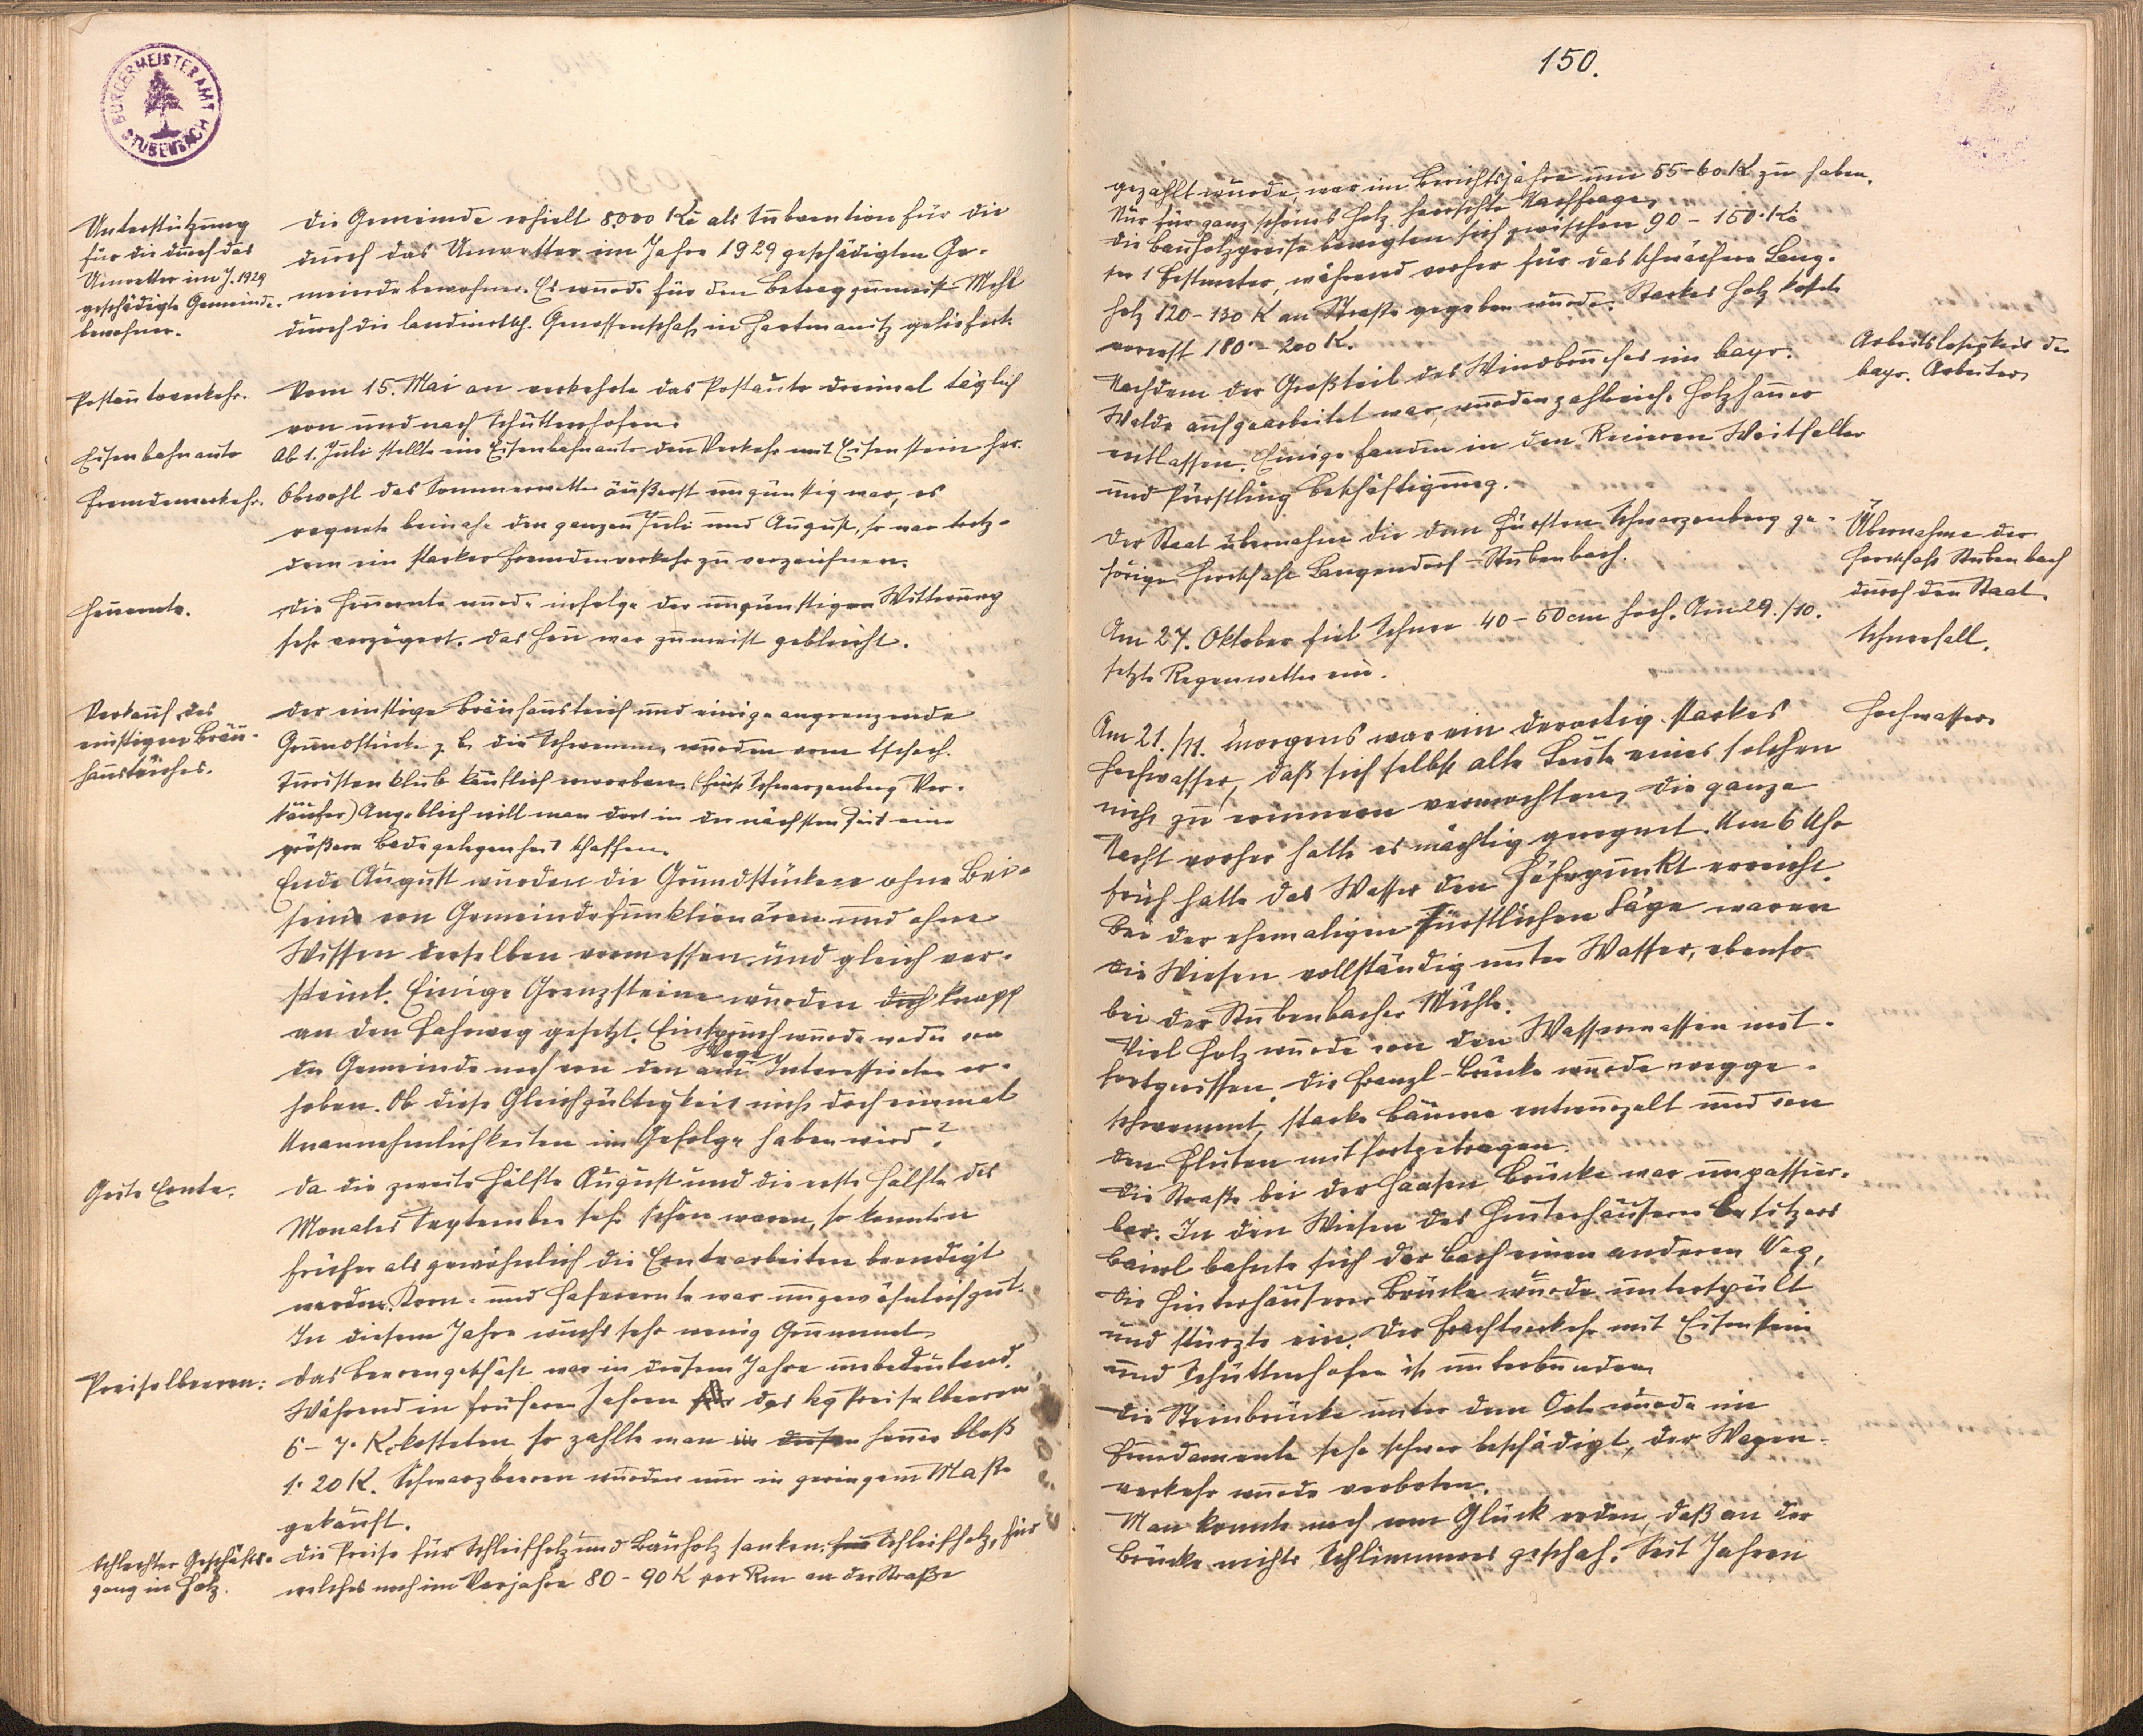 BÜRGERMEISTERAMT
STUBENBACH
Unterstützung
für die durch das
Unwetter im J. 1929
geschädigte Gemeinde-
bewohner.
Die Gemeinde erhielt 8000 Kč als Subvention für die
durch das Unwetter im Jahre 1929 geschädigten Ge-
meindebewohner. Es wurde für den Betrag zumeist Mehl
durch die landwirtsch. Genossenschaft in Hartmanitz geliefert.
Postautoverkehr.
Vom 15. Mai an verkehrte das Postauto dreimal täglich
von und nach Schüttenhofen.
Eisenbahnauto
Ab 1. Juli stellte ein Eisenbahnauto den Verkehr mit Eisenstein her.
Fremdenverkehr.
Obwohl das Sommerwetter äußerst ungünstig war, es
regnete beinahe den ganzen Juli und August, so war trotz-
dem ein starker Fremdenverkehr zu verzeichnen.
Heuernte.
Die Heuernte wurde infolge der ungünstigen Witterung
sehr verzögert. Das Heu war zumeist gebleicht.
Verkauf des
einstigen Bräu-
hausteiches.
Der einstige Bräuhausteich und einige angrenzende
Grundstücke z. B. die Schwemm, wurden vom tschech.
Turistenklub käuflich erworben. (Fürst Schwarzenberg Ver-
käufer) Angeblich will man dort in der nächsten Zeit eine
größere Badegelegenheit schaffen.
Ende August wurden die Grundstücke ohne Bei-
sein von Gemeindefunktionären und ohne
Wissen derselben vermessen und gleich ver-
steint. Einige Grenzsteine wurden dich knapp
an den Fahrweg gesetzt. Einspruch wurde weder von
der Gemeinde noch von den am Wege Interessierten er-
hoben. Ob diese Gleichgültigkeit nicht doch einmal
Unannehmlichkeiten im Gefolge haben wird?
Gute Ernte.
Da die zweite Hälfte August und die erste Hälfte des
Monates September sehr schön waren, so konnten
früher als gewöhnlich die Erntearbeiten beendigt
werden. Korn- und Haferernte war ungewöhnlich gut.
In diesem Jahre wuchs sehr wenig Grummet.
Preiselbeeren:
Das Beerengeschäft war in diesem Jahre unbedeutend.
Während in früheren Jahren für das kg Preiselbeeren
6 - 7 Kč kosteten so zahlte man in diesen heuer bloß
1·20 K. Schwarzbeeren wurden nur in geringem Maße
gekauft.
Schlechter Geschäfts-
gang im Holz.
Die Preise für Schleifholz und Bauholz sanken. Für Schleifholz, für
welches noch im Vorjahre 80 - 90 K per Rm an der Straße
150.
gezahlt wurde, war im Berichtsjahre um 55-60 K zu haben.
Nur für ganz schönes Holz herrschte Nachfrage.
Die Bauholzpreise bewegten sich zwischen 90 - 150 Kč
per 1 Festmeter, während vorher für das schwächere Lang-
holz 120 - 130 K an Straße gegeben wurde. Starkes Holz kostete
vorerst 180 - 200 K.
Arbeitslosigkeit der
bayr. Arbeiter
Nachdem der Großteil des Windbruches im bayr.
Walde aufgearbeitet war, wurden zahlreiche Holzhauer
entlassen. Einige fanden in den Revieren Weitfäller
und Pürstling Beschäftigung.
Übernahme der
Herrschaft Stubenbach
durch den Staat.
Der Staat übernahm die dem Fürsten Schwarzenberg ge-
hörige Herrschaft Langendorf-Stubenbach.
Schneefall.
Am 27. Oktober fiel Schnee 40 - 50 cm hoch. Am 29./10.
setzte Regenwetter ein.
Hochwasser
Am 21./11. morgens war ein derartig starkes
Hochwasser, daß sich selbst alte Leute eines solchen
nicht zu erinnern vermochten. Die ganze
Nacht vorher hatte es mächtig geregnet. Um 6 Uhr
früh hatte das Wasser den Höhepunkt erreicht.
Bei der ehemaligen Fürstlichen Säge waren
die Wiesen vollständig unter Wasser, ebenso
bei der Stubenbacher Mühle.
Viel Holz wurde von den Wassermassen mit-
fortgerissen. Die Franzl-Brücke wurde wegge-
schwemmt, starke Bäume entwurzelt und von
den Fluten mit fortgetragen.
Die Straße bei der Haasen Brücke war unpassier-
bar. In den Wiesen des Hinterhäusern Besitzers
Baierl bahnte sich der Bach einen anderen Weg,
die Hinterhäuserer Brücke wurde unterspült
und stürzte ein. Der Frachtverkehr mit Eisenstein
und Schüttenhofen ist unterbunden.
Die Steinbrücke unter dem Orte wurde im
Fundamente sehr schwer beschädigt, der Wagen-
verkehr wurde verboten.
Man konnte noch von Glück reden, daß an der
Brücke nichts Schlimmeres geschah. Seit Jahren